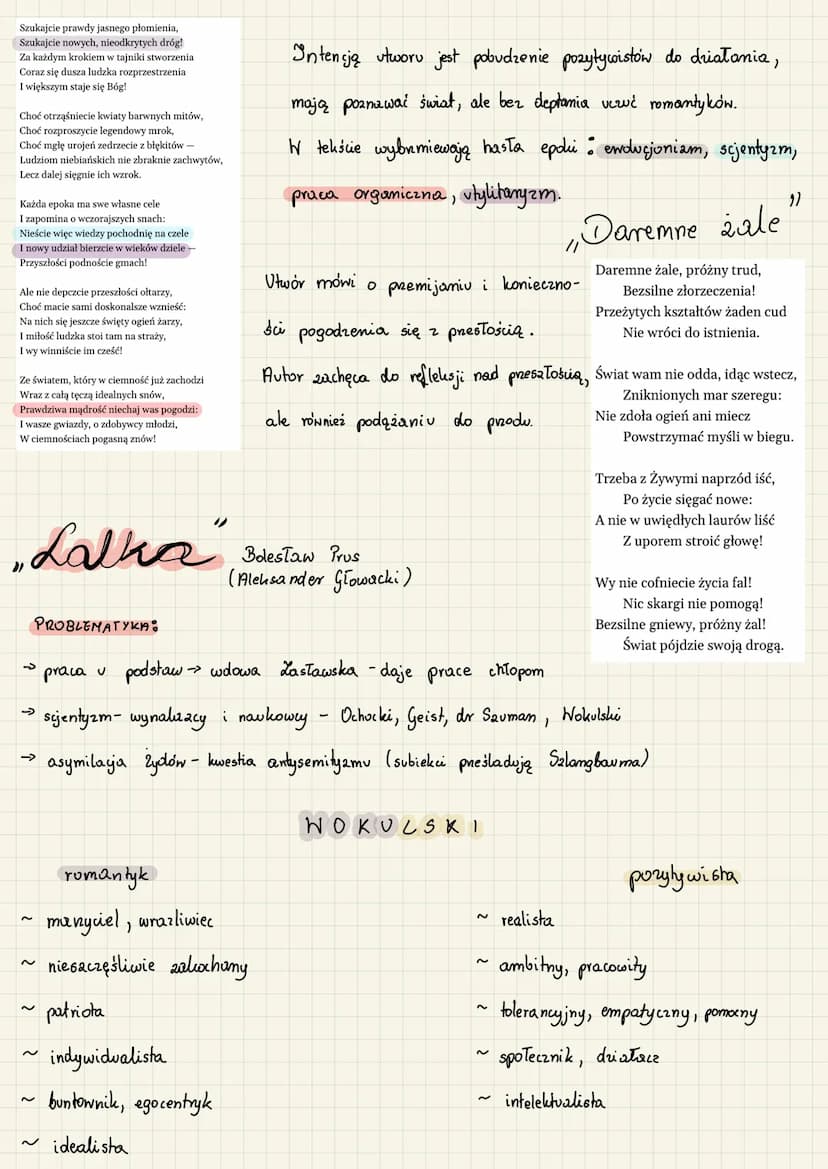 Szukajcie prawdy jasnego płomienia,
Szukajcie nowych, nieodkrytych dróg!
Za każdym krokiem w tajniki stworzenia
Coraz się dusza ludzka rozprzestrzenia
I większym staje się Bóg!
Choć otrząśniecie kwiaty barwnych mitów,
Choć rozproszycie legendowy mrok,
Choć mgłę urojeń zedrzecie z błękitów —
Ludziom niebiańskich nie zbraknie zachwytów,
Lecz dalej sięgnie ich wzrok.
Każda epoka ma swe własne cele
I zapomina o wczorajszych snach:
Nieście więc wiedzy pochodnię na czele
I nowy udział bierzcie w wieków dziele —
Przyszłości podnoście gmach!
Ale nie depczcie przeszłości ołtarzy,
Choć macie sami doskonalsze wznieść:
Na nich się jeszcze święty ogień żarzy,
I miłość ludzka stoi tam na straży,
I wy winniście im cześć!
Ze światem, który w ciemność już zachodzi
Wraz z całą tęczą idealnych snów,
Prawdziwa mądrość niechaj was pogodzi:
I wasze gwiazdy, o zdobywcy młodzi,
W ciemnościach pogasną znów!
Intencją utworu jest pobudzenie pozytywistów do działania,
mają poznawać świat, ale bez deptania uczuć romantyków.
W tekście wybrzmiewają hasła epoki: ewolucjonizm, scjentyzm,
praca organiczna, utylitaryzm.
„Daremne żale"
Utwór mówi o przemijaniu i konieczno-
ści pogodzenia się z przesłością.
Autor zachęca do refleksji nad przeszłością,
ale również podążaniu do przodu.
Daremne żale, próżny trud,
Bezsilne złorzeczenia!
Przeżytych kształtów żaden cud
Nie wróci do istnienia.
Świat wam nie odda, idąc wstecz,
Zniknionych mar szeregu:
Nie zdoła ogień ani miecz
Powstrzymać myśli w biegu.
Trzeba z Żywymi naprzód iść,
Po życie sięgać nowe:
A nie w uwiędłych laurów liść
Z uporem stroić głowę!
Wy nie cofniecie życia fal!
Nic skargi nie pomogą!
Bezsilne gniewy, próżny żal!
Świat pójdzie swoją drogą.
„Lalka" Bolesław Prus
(Aleksander Głowacki)
PROBLEMATYKA:
→ praca u podstaw → wdowa Zasławska - daje prace chłopom
→ scjentyzm - wynalazcy i naukowcy - Ochocki, Geist, dr Szuman, Wokulski
→ asymilacja Żydów - kwestia antysemityzmu (subiekci prześladują Szlangbauma)
WOKULSKI
romantyk
~ marzyciel, wrażliwiec
~ nieszczęśliwie zakochany
~ patriota
~ indywidualista
~ buntownik, egocentryk
~ idealista
pozytywista
~ realista
~ ambitny, pracowity
~ tolerancyjny, empatyczny, pomocny
~ społecznik, działacz
~ intelektualista